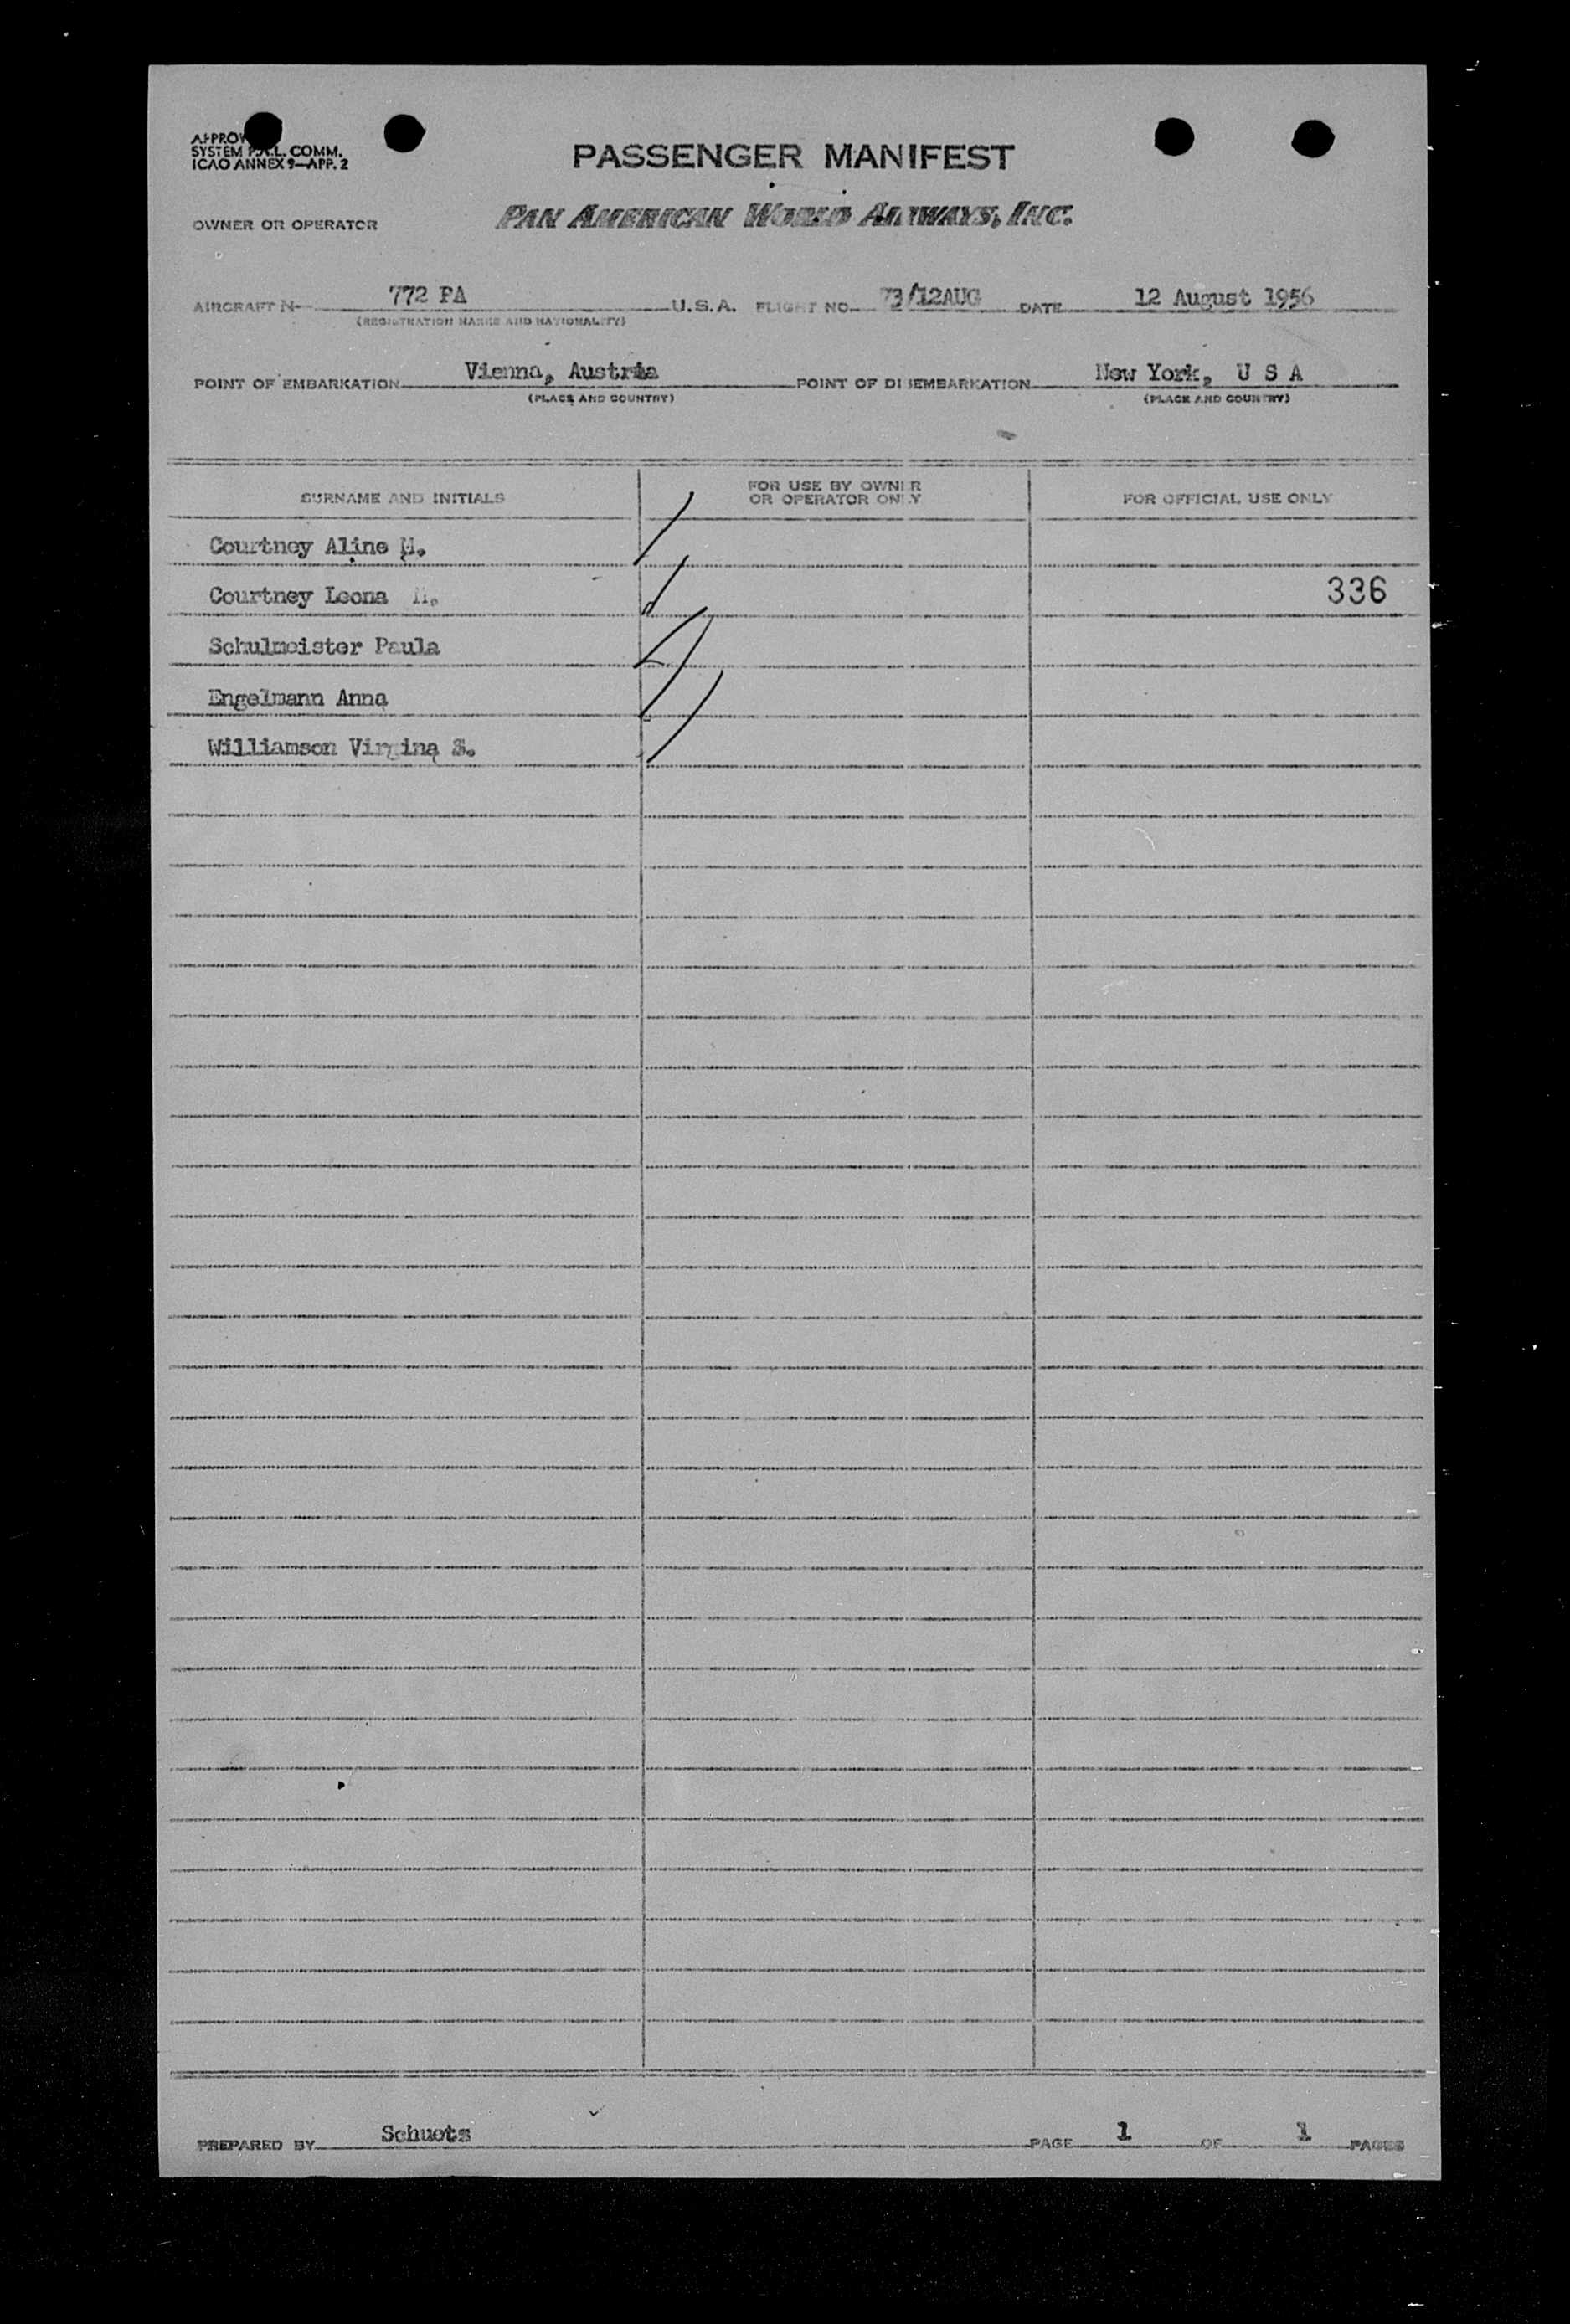 SYSTEM P.A.L. COMM.
ICAO ANNEX 9—APP. 2
PASSENGER MANIFEST
OWNER OR OPERATOR PAN AMERICAN WORLD AIRWAYS, INC.
AIRCRAFT N 772 PA U.S.A. FLIGHT NO. 73/12AUG DATE 12 August 1956
(REGISTRATION MARKS AND NATIONALITY)
POINT OF EMBARKATION Vienna, Austria POINT OF DISEMBARKATION New York, U S A
(PLACE AND COUNTRY) (PLACE AND COUNTRY)
SURNAME AND INITIALS FOR USE BY OWNER OR OPERATOR ONLY FOR OFFICIAL USE ONLY
Courtney Aline M.
Courtney Leona 336
Schulmeister Paula
Engelmann Anna
Williamson Virgina S.
PREPARED BY Schuetz PAGE 1 OF 1 PAGES